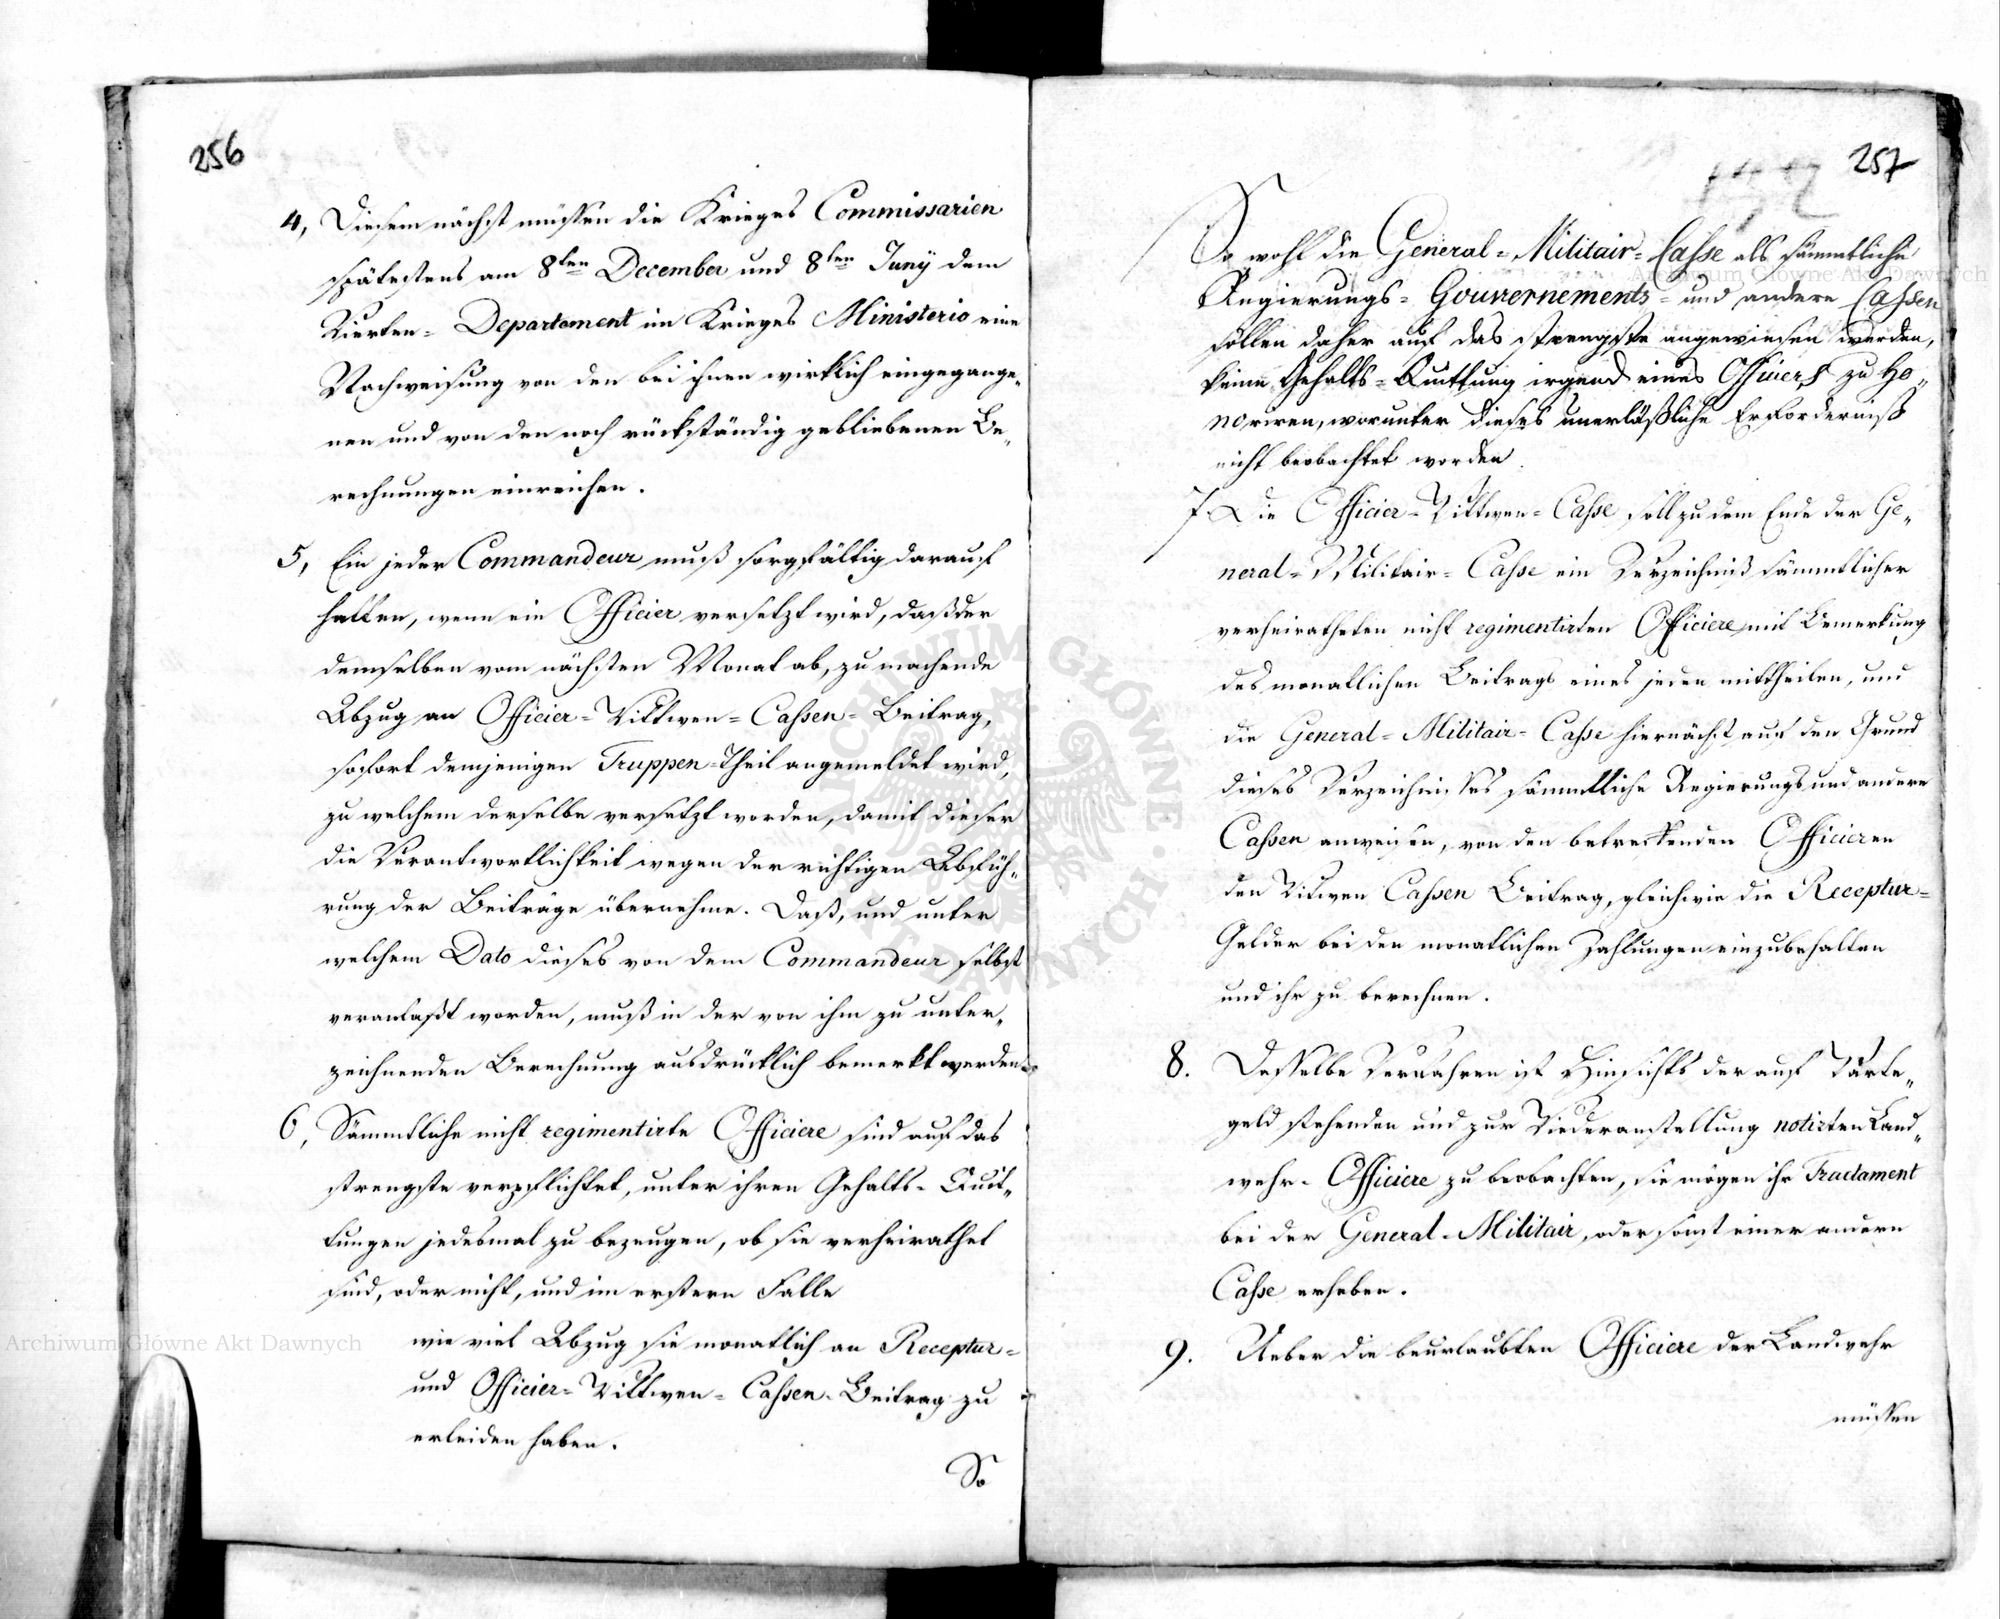 256
4, Diesem nächst müssen die Krieges Commissarien
spätestens am 8ten December und 8ten Juny dem
Vierten=Departement im Krieges Ministerio eine
Nachweisung von den bei ihnen wirklich eingegange„
nen und von den noch rückständig gebliebenen Be„
rechnungen einreichen.
5, Ein jeder Commandeur muß sorgfältig darauf
halten, wenn ein Officier versetzt wird, daß der
demselben vom nächsten Monat ab, zu machende
Abzug an Officier=Wittwen=Cassen=Beitrag,
sofort demjenigen Truppen=Theil angemeldet wird,
zu welchem derselbe versetzt worden, damit dieser
die Verantwortlichkeit wegen der richtigen Abfüh„
rung der Beiträge übernehme. Daß, und unter
welchem Dato dieses von dem Commandeur selbst
veranlaßt worden, muß in der von ihm zu unter„
zeichnenden Berechnung ausdrücklich bemerkt werden.
6, Sämmtliche nicht regimentirte Officiere sind auf das
strengste verpflichtet, unter ihren Gehalts=Quit„
tungen jedesmal zu bezeugen, ob sie verheirathet
sind, oder nicht, und im erstern Falle
wie viel Abzug sie monatlich an Receptur=
und Officier=Wittwen=Cassen=Beitrag zu
erleiden haben.
So
257
So wohl die General=Militair=Casse als sämmtliche
Regierungs=Gouvernements=und andere Cassen
sollen daher auf das strengste angewiesen werden,
keine Gehalts=Quittung irgend eines Officiers zu Ho„
noriren, worunter dieses unerläßliche Erforderniß
nicht beobachtet worden.
7. Die Officier=Wittwen=Casse soll zu dem Ende der Ge„
neral=Militair=Casse ein Verzeichniß sämmtlicher
verheiratheten nicht regimentirten Officiere mit Bemerkung
des monatlichen Beitrags eines jeden mittheilen, und
die General=Militair=Casse hiernächst auf den Grund
dieses Verzeichnisses sämmtliche Regierungs und andere
Cassen anweisen, von den betreffenden Officieren
den Witwen Cassen Beitrag, gleichwie die Receptur=
Gelder bei den monatlichen Zahlungen einzubehalten
und ihr zu berechnen.
8. Dasselbe Verfahren ist Hinsichts der auf Warte„
geld stehenden und zur Wiederanstellung notirten Land„
wehr=Officiere zu beobachten, sie mögen ihr Tractament
bei der General=Militair, oder sonst einer andern
Casse erheben.
9. Ueber die beurlaubten Officiere der Landwehr
müssen
Archiwum Główne Akt Dawnych
Archiwum Główne Akt Dawnych
ARCHIWUM GŁÓWNE · AKT DAWNYCH ·